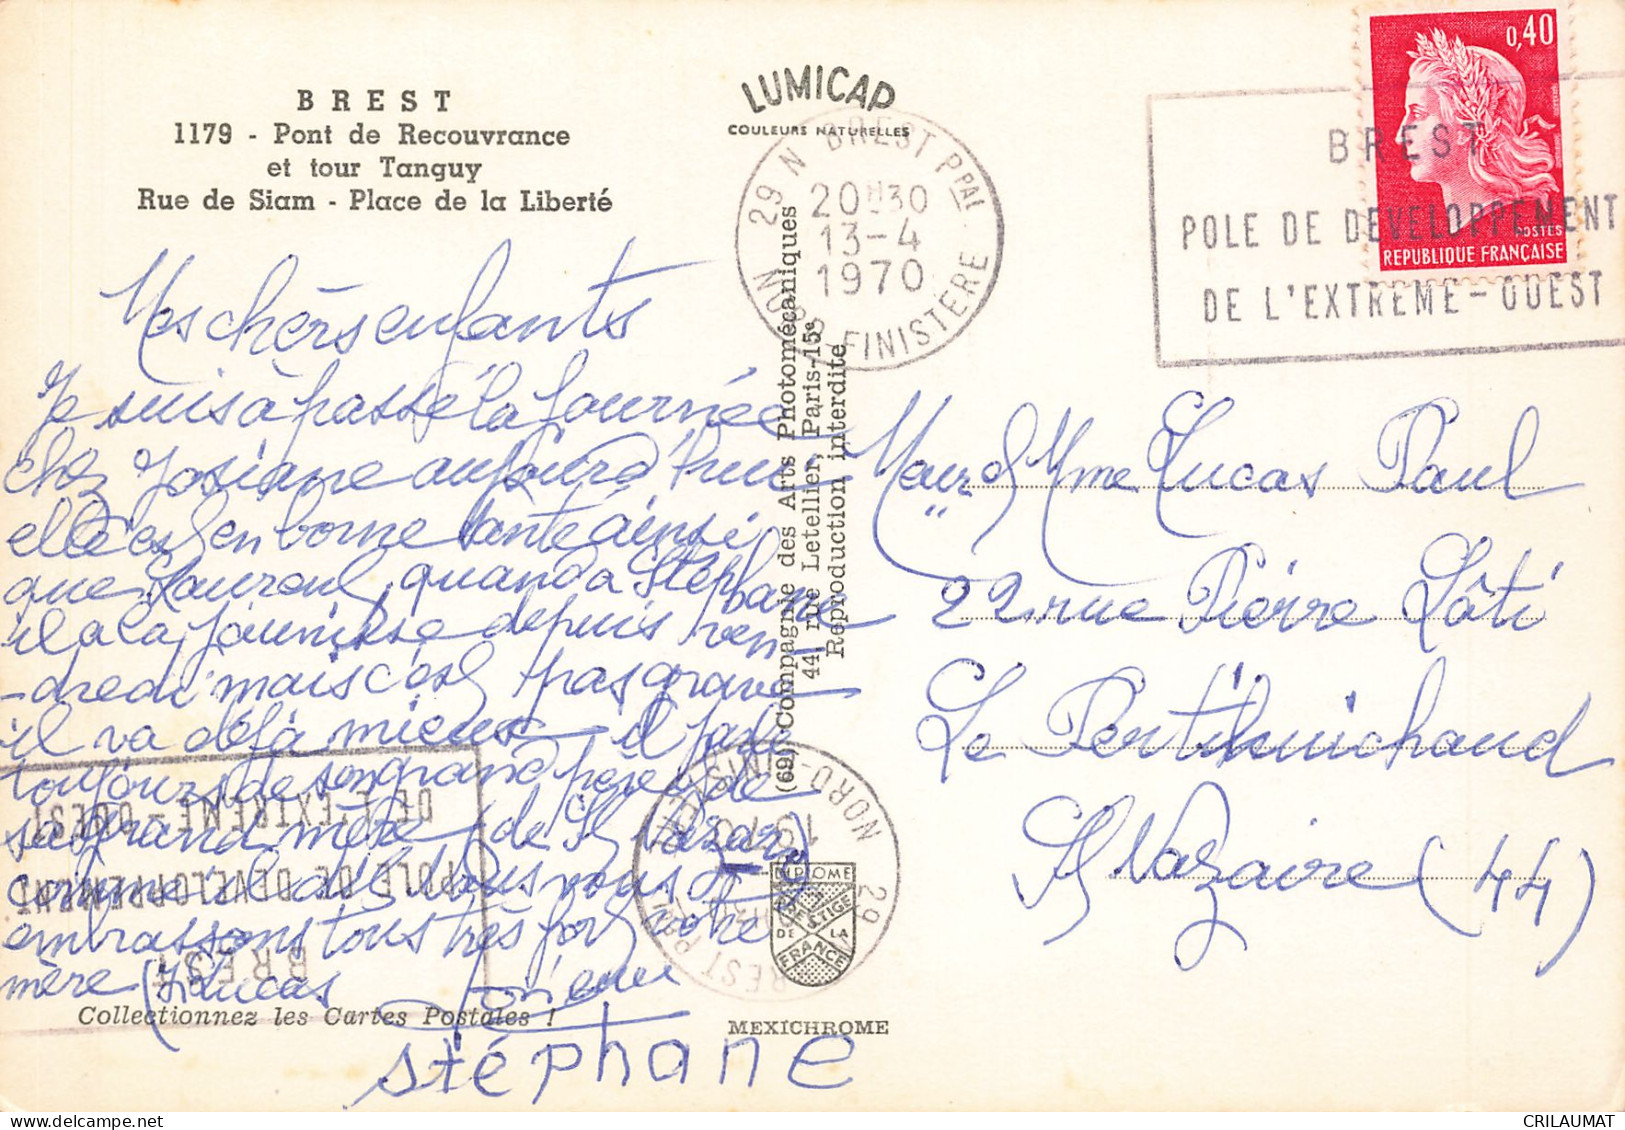 BREST
1179 - Pont de Recouvrance
et tour Tanguy
Rue de Siam - Place de la Liberté
LUMICAP
COULEURS NATURELLES
29 N BREST Ppal
20H30
13-4
1970
NORD-FINISTÈRE
BREST
POLE DE DEVELOPPEMENT
DE L'EXTREME-OUEST
0,40
POSTES
REPUBLIQUE FRANÇAISE
Mes chèrs enfants
Je suis à passé la journée
chez Josiane aujourd'hui
elle est en bonne santé ainsi
que quand a Stéphane
il a la jaunisse depuis ven
-dredi mais c'est pas grave
il va déjà mieux il parle
toujours de son grand père et de
sa grand mère de St Nazaire
comme il dit Nous vous
embrassons tous très fort votre
mère Lucas
stéphane
(69) Compagnie des Arts Photomécaniques
44, rue Letellier, Paris-15e
Reproduction interdite
Mr et Mme Lucas Paul
22 rue Pierre Lôti
Le Pertihuichaud
St Nazaire (44)
BREST
POLE DE DEVELOPPEMENT
DE L'EXTREME-OUEST
DIPLOME
PRESTIGE
DE LA
FRANCE
Collectionnez les Cartes Postales !
MEXICHROME
CRILAUMAT